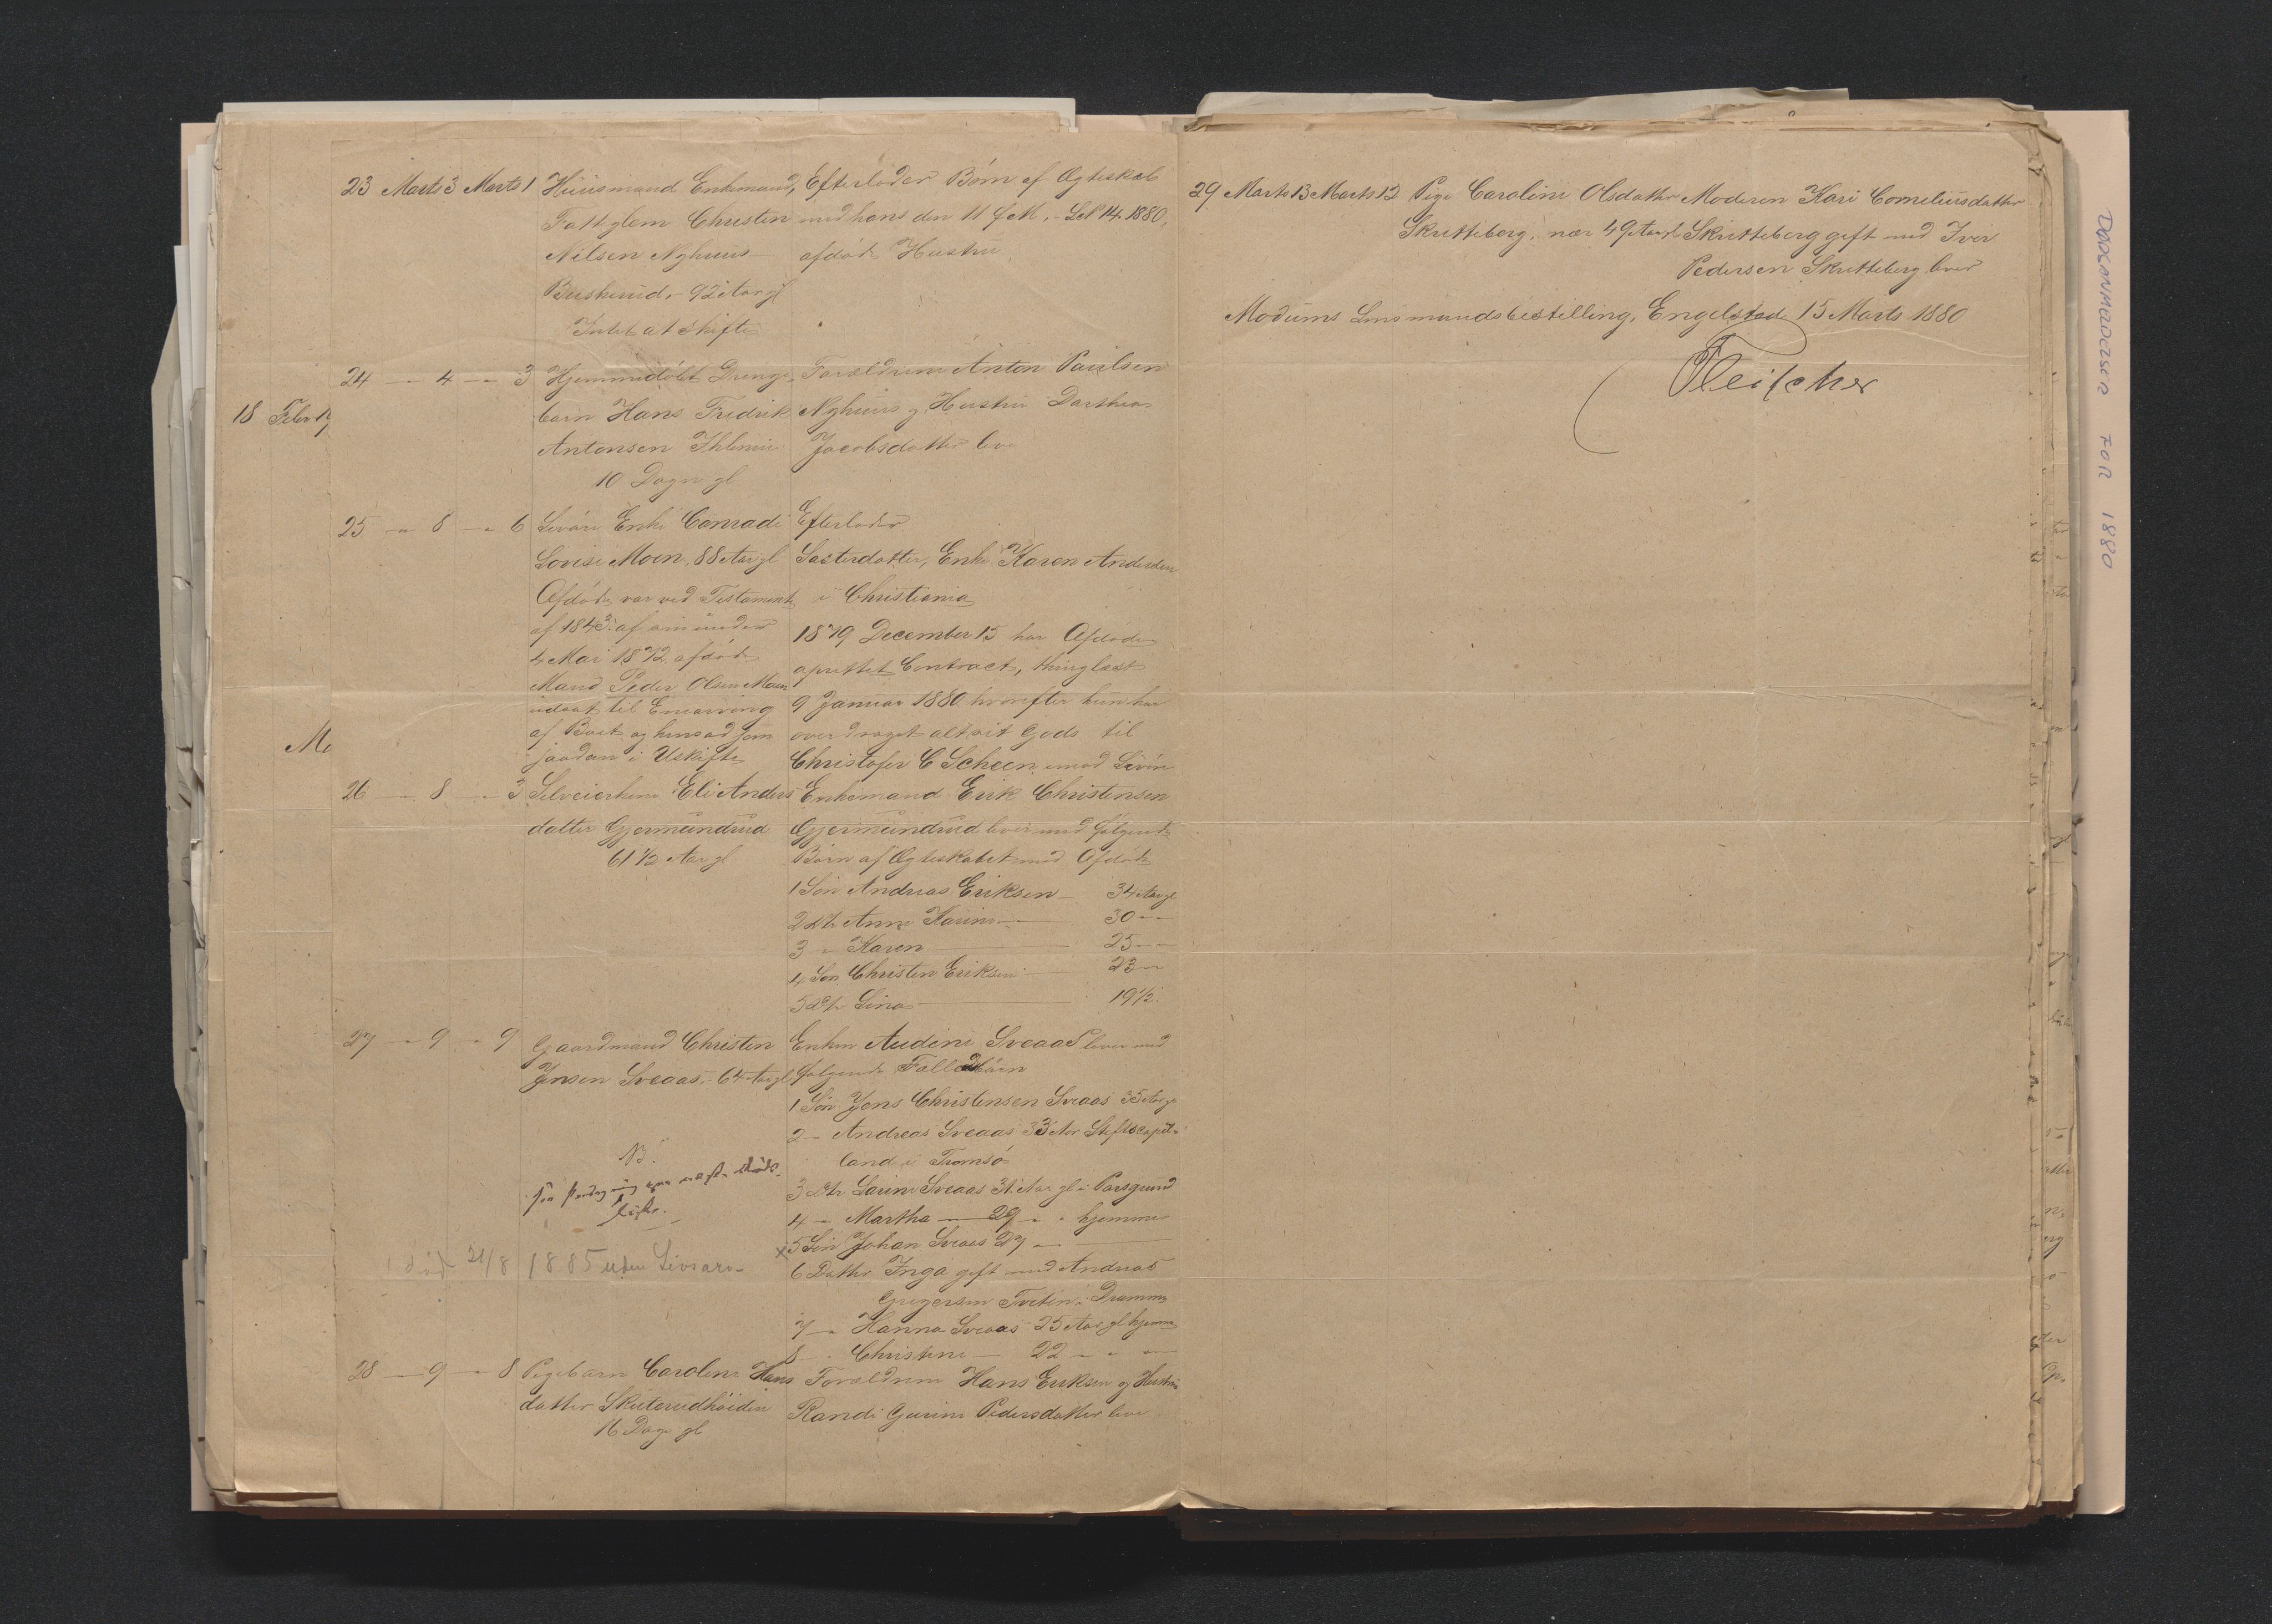 23 Marts 3 Marts 1 Huusmand Enkemand, Efterlader Børn af Ægteskab
Fattiglem Christen med hans den 11 f. M. - Lst 14. 1880,
Nilsen Nyhuus afdøde Hustru
Buskerud, - 92 Aar gl
Intet at skifte
24 - 4 - 3 Hjemmedøbt Drenge- Forældrene Anton Paulsen
barn Hans Fredrik Nyhuus og Hustru Dorthea
18 Febr
Antonsen Jacobsdatter leve
10 Dage gl
25 - 8 - 6 Enke Conradi Efterlader
Lovise Moen, 88 Aar gl Søsterdatter, Enke Karen Andersen
Afdøde var ved Testament i Christiania
af 1843 af sin under 1879 December 15 har Afdøde
4 Mai 1872 afdøde oprettet Contract, thinglæst
Mand Peder Olsen Moen
indsat til Enearving 9 Januar 1880 hvorefter hun har
af Boet og hensad som overdraget alt sit Gods til
saadan i Uskifte Christofer C Scheen imod Livøre
26 - 8 - 3 Selveierkone Eli Anders Enkemand Erik Christensen
datter Gjermundrud Gjermundrud lever med følgende
61 1/2 Aar gl Børn af Ægteskabet med Afdøde
1 Søn Andreas Eriksen - 34 Aar gl
2 Dtr Anne Karine - 30 - -
3 - Karen 25 - -
4 Søn Christen Eriksen 23 -
5 Dtr Lina 19 1/2
27 - 9 - 9 Gaardmand Christen Enken Audine Sveaas lever med
Jensen Sveaas, - 64 Aar gl følgende Fællesbørn
1 Søn Jens Christensen Sveaas 35 Aar gl
2 - Andreas Sveaas 33 Aar Stiftscapel-
land i Tromsø
NB.
3 Dtr Laura Sveaas 31 Aar gl i Porsgrund
4 - Martha - 29 - - hjemme
5 Søn Johan Sveaas 27 -
død 21/8 1885 uden Livsarv-
6 Datter Inga gift med Andreas
Gregersen Tveten i Drammen
7 - Hanna Sveaas 25 Aar gl hjemme
8 - Christine - 22 - - -
28 - 9 - 8 Pigebarn Caroline Hans Forældrene Hans Eriksen og Hustru
datter Skuterudhøiden Randi Gurine Pedersdatter leve
16 Dage gl
29 Marts 13 Marts 12 Pige Caroline Olsdatter Moderen Kari Corneliusdatter
Skutteberg, nær 49 Aar gl Skutteberg gift med Iver
Pedersen Skutteberg lever
Modums Lensmandsbestilling, Engelstad 15 Marts 1880
Fleischer
DØDSANMELDELSER FOR 1880